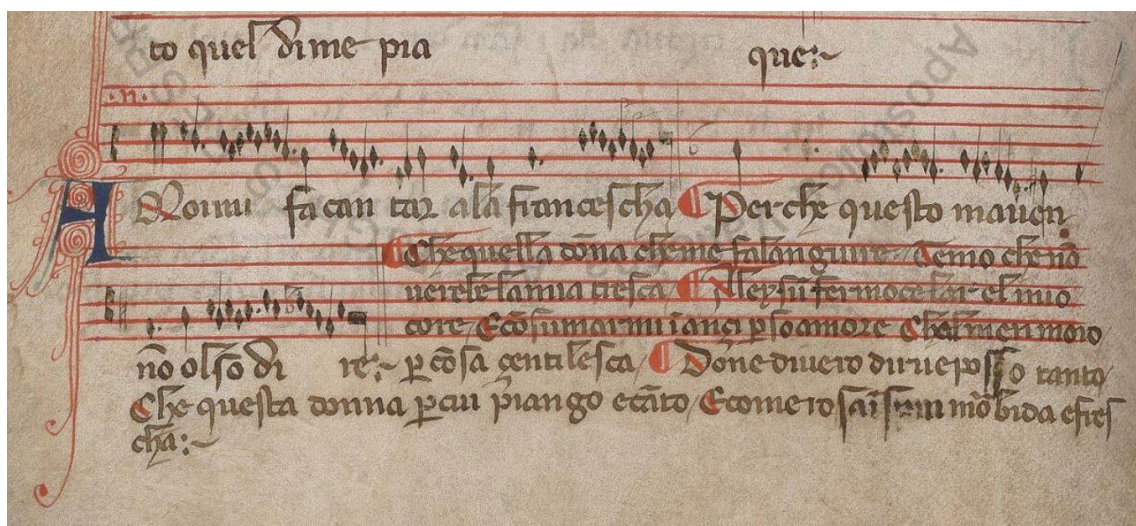 to quel dime pia que:~
.n.
AMormi fa can tar ala francescha Perche questo maven
Che quella dõna cheme fa langwire Temo che nõ
verebe la mia tresca A lley sũ fermo celar el mio
core E cõsumarmi i ançi p so amore Chalmen moro
nõ olso di re:~ p cosa gentilesca Done di vero dir ve posso tanto
Che questa donna p cui piango e cãto E come ro morbida e fres
cha:~